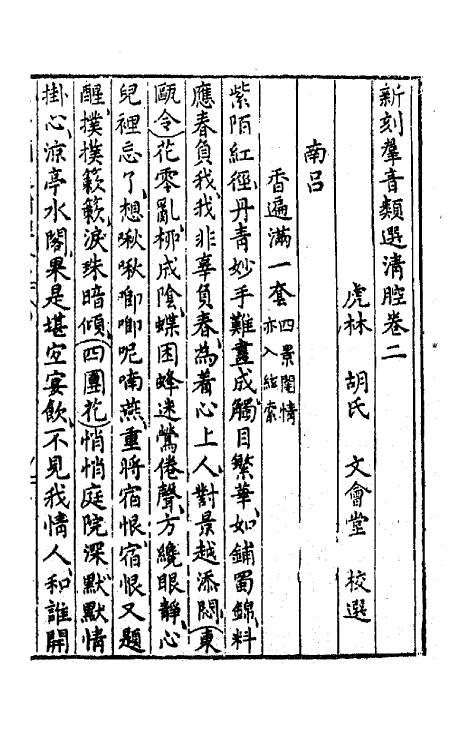 新刻羣音類選清腔卷二
虎林　胡氏　文會堂　校選
南呂
香遍滿一套
四景閨情
亦入絃索
紫陌紅徑丹青妙手難畫成觸目繁華如鋪蜀錦料
應春負我我非辜負春為着心上人對景越添悶（東
甌令）花零亂柳成陰蝶困蜂迷鶯倦聲方纔眼靜心
兒裡忘了想啾啾唧唧呢喃燕重將宿恨宿恨又題
醒撲撲簌簌淚珠暗傾（四團花）悄悄庭院深默默情
掛心涼亭水閣果是堪宜宴飲不見我情人和誰開